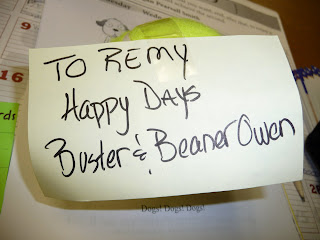 16
TO REMY
Happy Days
Buster & Beaner Owen
Dogs! Dogs! Dogs!